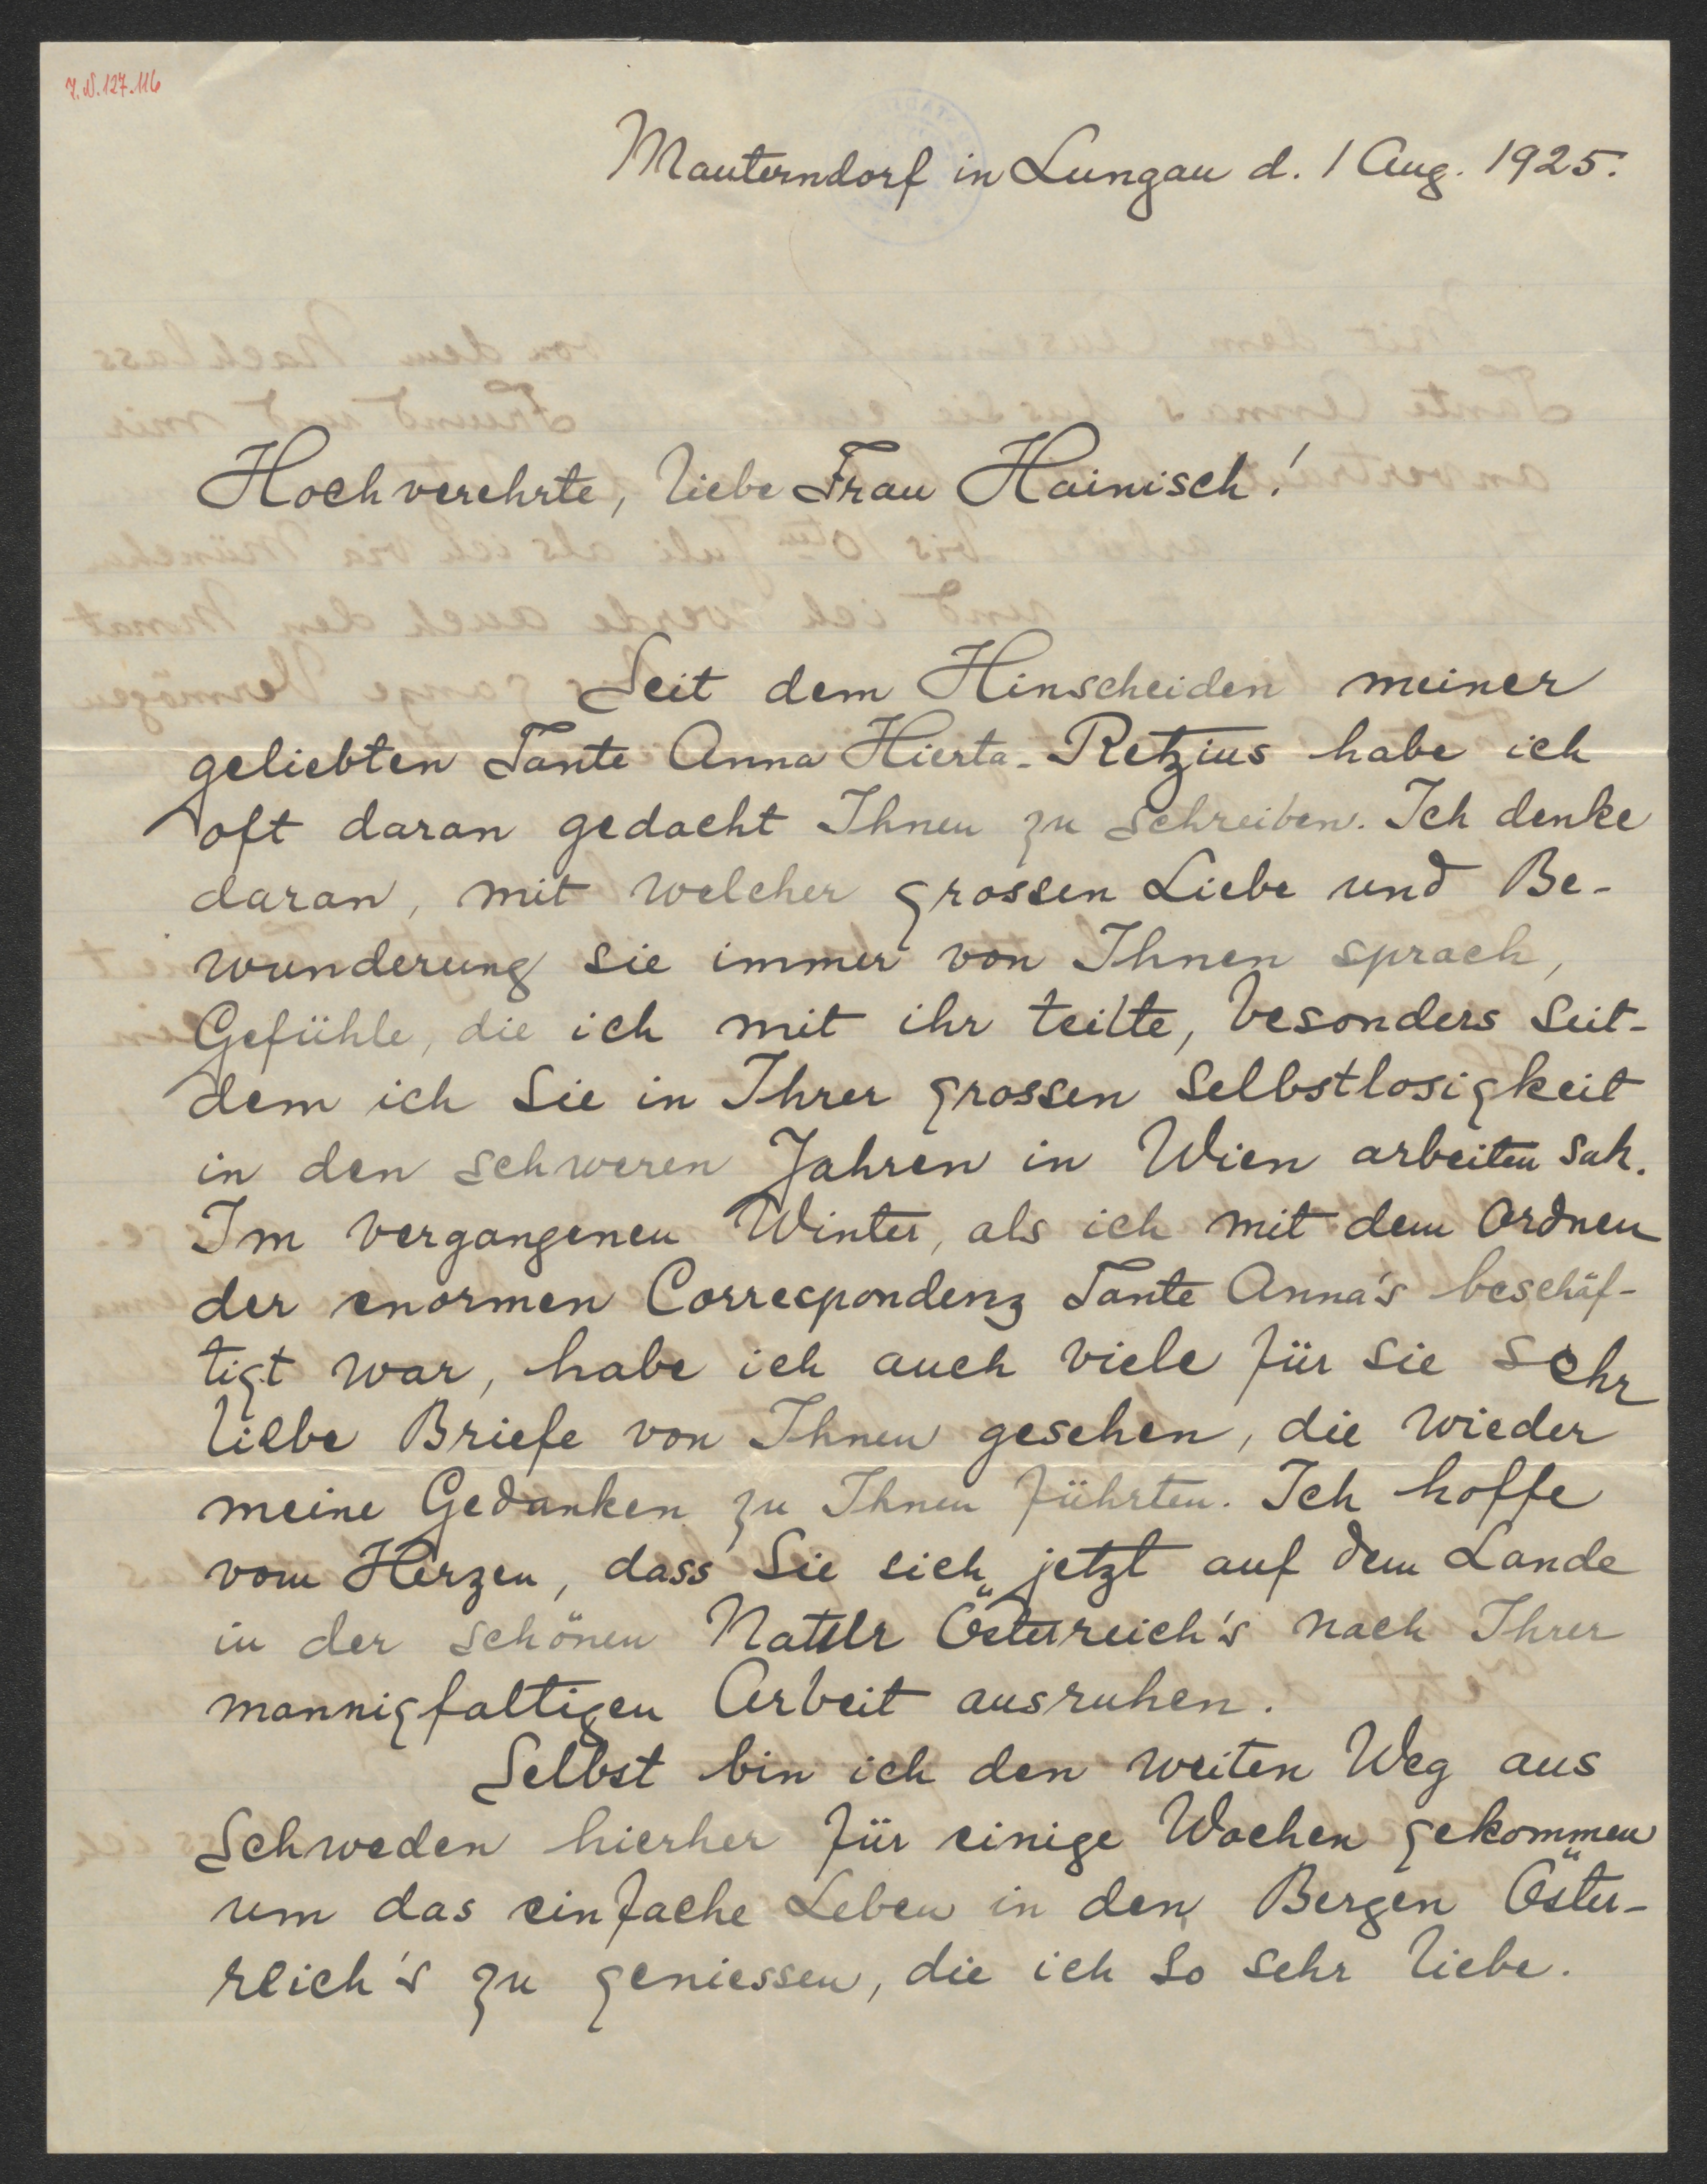 I.N. 127.116
Mauterndorf in Lungau d. 1 Aug. 1925.
Hochverehrte, liebe Frau Hainisch!
Seit dem Hinscheiden meiner
geliebten Tante Anna Hierta-Retzius habe ich
oft daran gedacht Ihnen zu schreiben. Ich denke
daran, mit welcher grossen Liebe und Be-
wunderung sie immer von Ihnen sprach,
Gefühle, die ich mit ihr teilte, besonders seit-
dem ich Sie in Ihrer grossen Selbstlosigkeit
in den schweren Jahren in Wien arbeiten sah.
Im vergangenen Winter, als ich mit dem Ordnen
der enormen Correspondenz Tante Anna's beschäf-
tigt war, habe ich auch viele für sie sehr
liebe Briefe von Ihnen gesehen, die wieder
meine Gedanken zu Ihnen führten. Ich hoffe
vom Herzen, dass Sie sich jetzt auf dem Lande
in der schönen Natur Österreich's nach Ihrer
mannigfaltigen Arbeit ausruhen.
Selbst bin ich den weiten Weg aus
Schweden hierher für einige Wochen gekommen
um das einfache Leben in den Bergen Öster-
reich's zu geniessen, die ich so sehr liebe.